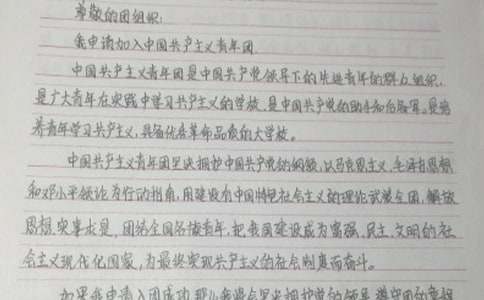 尊敬的团组织:
我申请加入中国共产主义青年团
中国共产主义青年团是中国共产党领导下的先进青年的群众组织,
是广大青年在实践中学习共产主义的学校,是中国共产党的助手和后备军,是培
养青年学习共产主义,具备优良革命品质的大学校。
中国共产主义青年团坚决拥护中国共产党的纲领,以马克思主义,毛泽东思想
和邓小平理论为行动指南,用建设有中国特色社会主义的理论武装全团,解放
思想,实事求是,团结全国各族青年,把我国建设成为富强,民主,文明的社
会主义现代化国家,为最终实现共产主义的社会制度而奋斗。
如果我申请入团成功,那么我将会坚决拥护党的领导,遵守团的章程